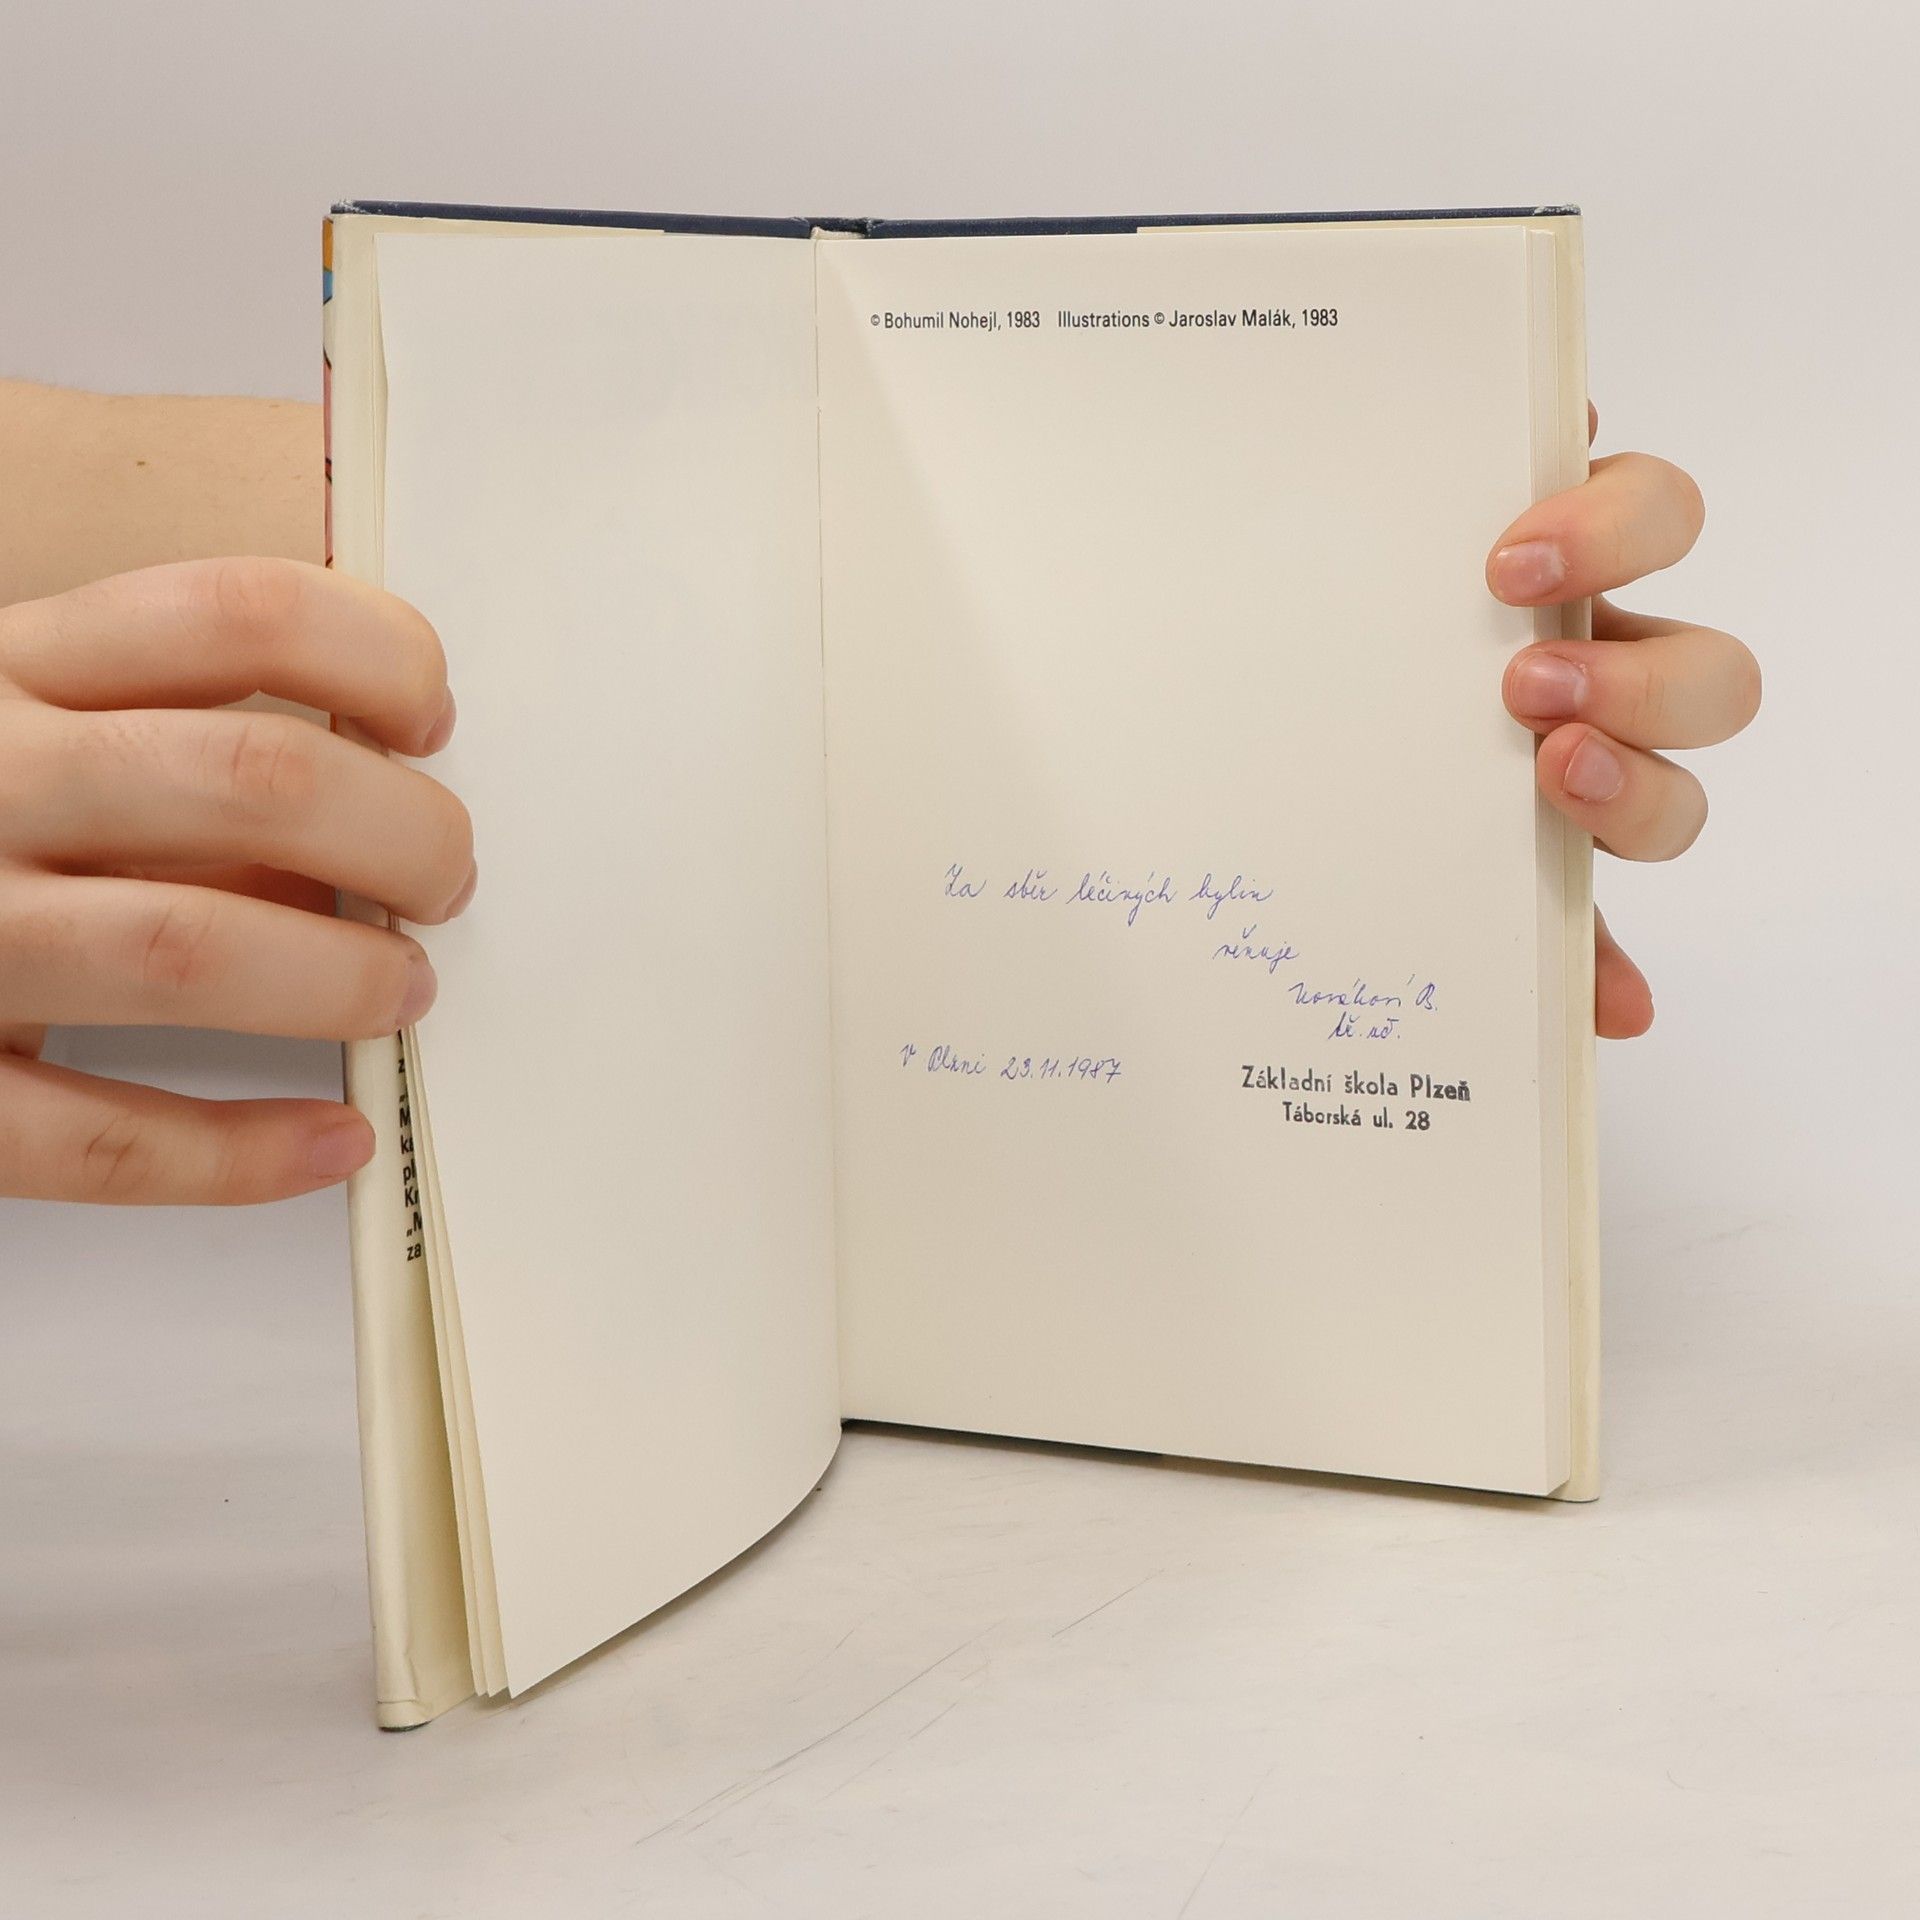 © Bohumil Nohejl, 1983 Illustrations © Jaroslav Malák, 1983
Za sběr léčivých bylin
věnuje
Nováková B.
tř. uč.
V Plzni 23.11.1987
Základní škola Plzeň
Táborská ul. 28
z
„
M
k
pl
„M
za